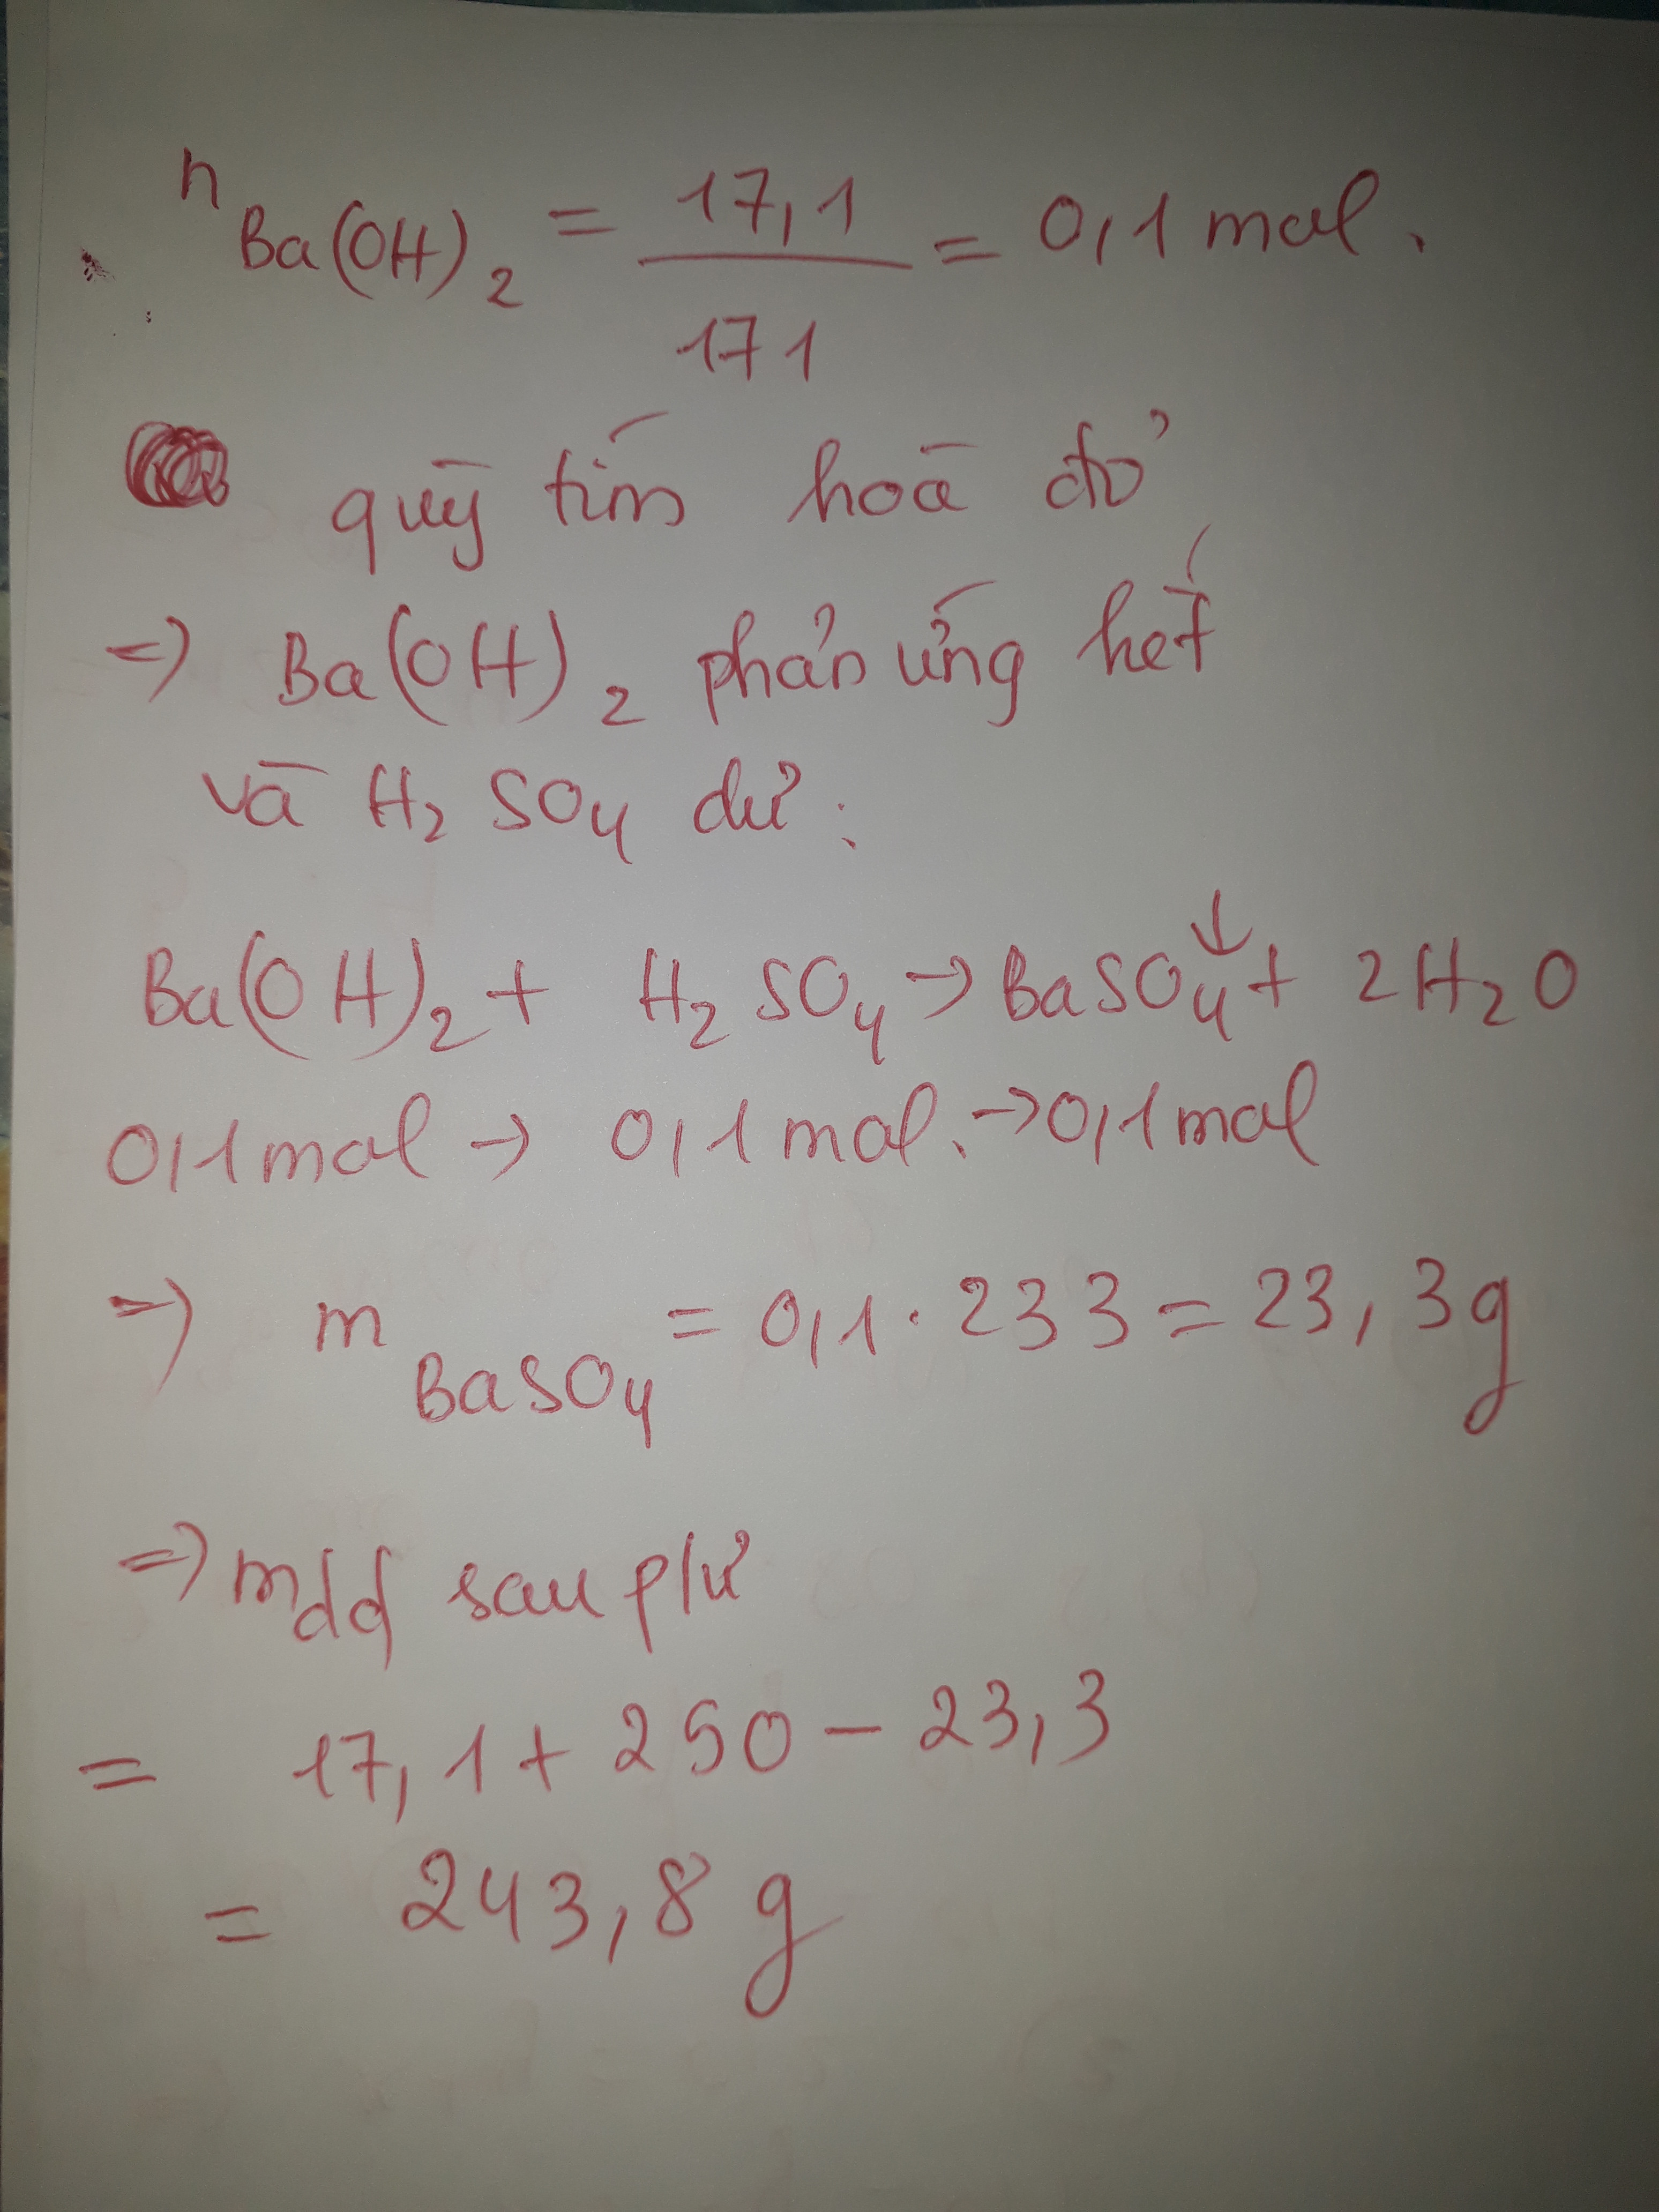 n Ba(OH)2 = 17,1 / 171 = 0,1 mol.
quỳ tím hoá đỏ
=) Ba(OH)2 phản ứng hết
và H2SO4 dư :
Ba(OH)2 + H2SO4 → BaSO4↓ + 2H2O
0,1 mol → 0,1 mol. → 0,1 mol
=) m BaSO4 = 0,1 . 233 = 23,3g
=) mdd sau pứ
= 17,1 + 250 − 23,3
= 243,8 g